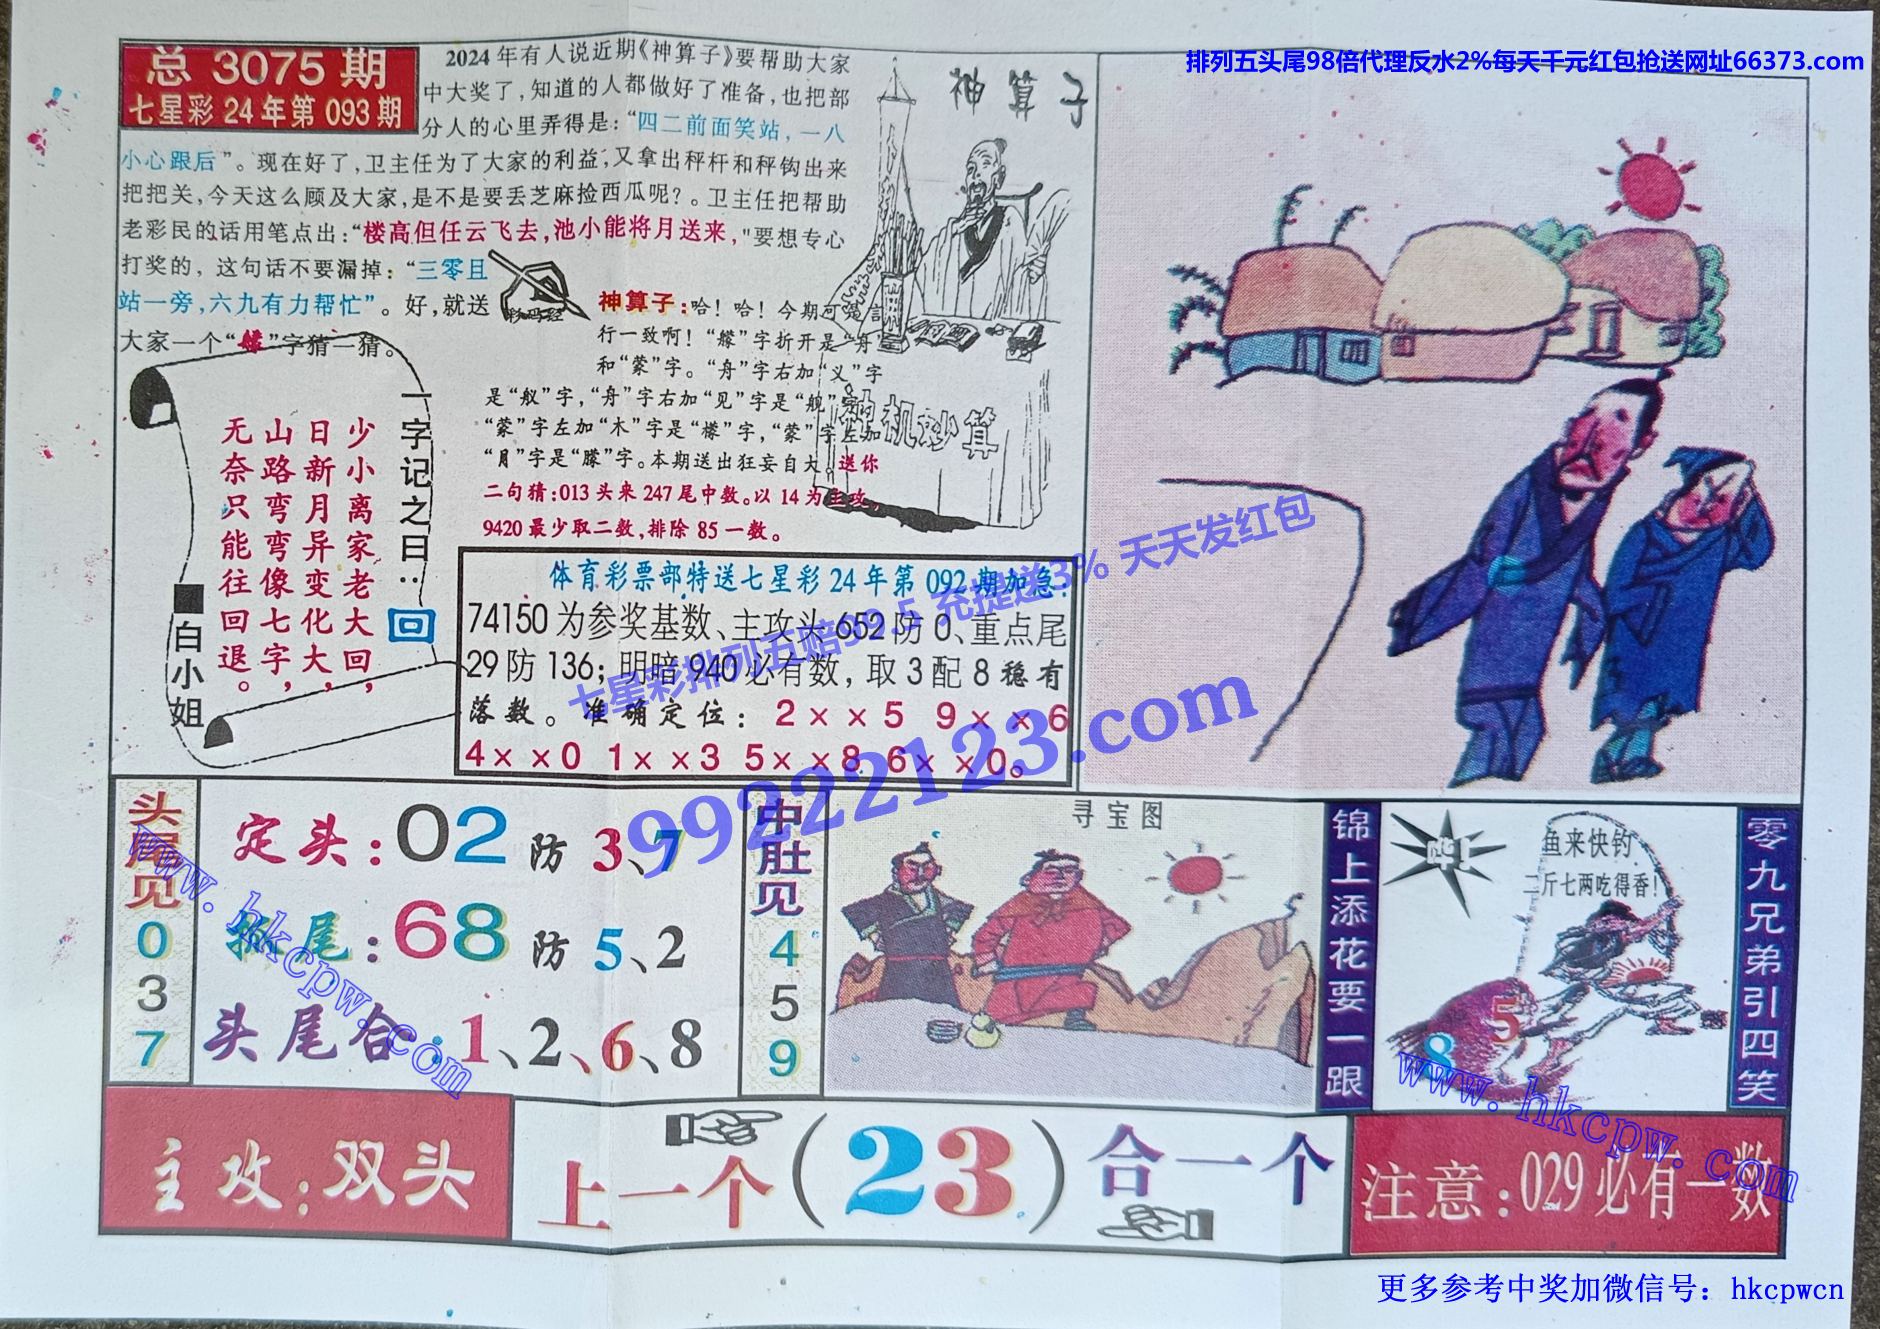 排列五头尾98倍代理反水2%每天千元红包抢送网址66373.com
总 3075 期
七星彩 24 年第 093 期
2024年有人说近期《神算子》要帮助大家
中大奖了,知道的人都做好了准备,也把部
分人的心里弄得是:“四二前面笑站,一八
小心跟后”。现在好了,卫主任为了大家的利益,又拿出秤杆和秤钩出来
把把关,今天这么顾及大家,是不是要丢芝麻捡西瓜呢?。卫主任把帮助
老彩民的话用笔点出:“楼高但任云飞去,池小能将月送来,"要想专心
打奖的，这句话不要漏掉：“三零且
站一旁,六九有力帮忙”。好,就送
大家一个“艨”字猜一猜。
神算子
神机妙算
神算子:哈！哈！今期可说言
行一致啊！“艨”字折开是“舟”
和“蒙”字。“舟”字右加“义”字
是“舣”字,“舟”字右加“见”字是“舰”字,
“蒙”字左加“木”字是“檬”字,“蒙”字左加
“月”字是“朦”字。本期送出狂妄自大。送你
二句猜:013 头来 247 尾中数。以 14 为主攻,
9420 最少取二数,排除 85 一数。
一字记之曰:回
少小离家老大回,
日新月异变化大,
山路弯弯像七字,
无奈只能往回退。
■白小姐
体育彩票部特送七星彩 24 年第 092 期加急:
74150 为参奖基数、主攻头 652 防 0、重点尾
29 防 136; 明暗 940 必有数, 取 3 配 8 稳有
落数。准确定位: 2××5 9××6
4××0 1××3 5××8 6××0。
七星彩排列五赔99.5 充提送3% 天天发红包
99222123.com
头尾见
0
3
7
定头:02 防 3、7
抓尾:68 防 5、2
头尾合:1、2、6、8
www.hkcpw.com
中肚见
4
5
9
寻宝图
锦上添花要一跟
鱼来快钓
二斤七两吃得香!
8 5
www.hkcpw.com
零九兄弟引四笑
主攻:双头
上一个(23)合一个
注意:029必有一数
更多参考中奖加微信号：hkcpwcn